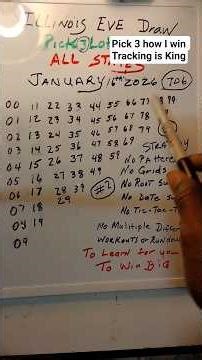 ILLINOIS EVE DRAW
Pick 3 Lot
ALL STATES
Pick 3 how I win
Tracking is King
JANUARY 16th 2026 706
00 11 22 33 44 55 66 77 99
01 12 23 34 45 56 67 78
02 13 24 35 46 57 68 79
03 14 25 36 47 58 69
04 15 26 37 48 59
05 16 27 38 49
06 17 28 39 #2
07 18 29
08 19
09
No Pattern
No Grids
No Root Sum
No Tic-Tac-T
No Multiple Differ
WORKOUTS OR RUNDOWN
To Learn for you
To WIN BIG